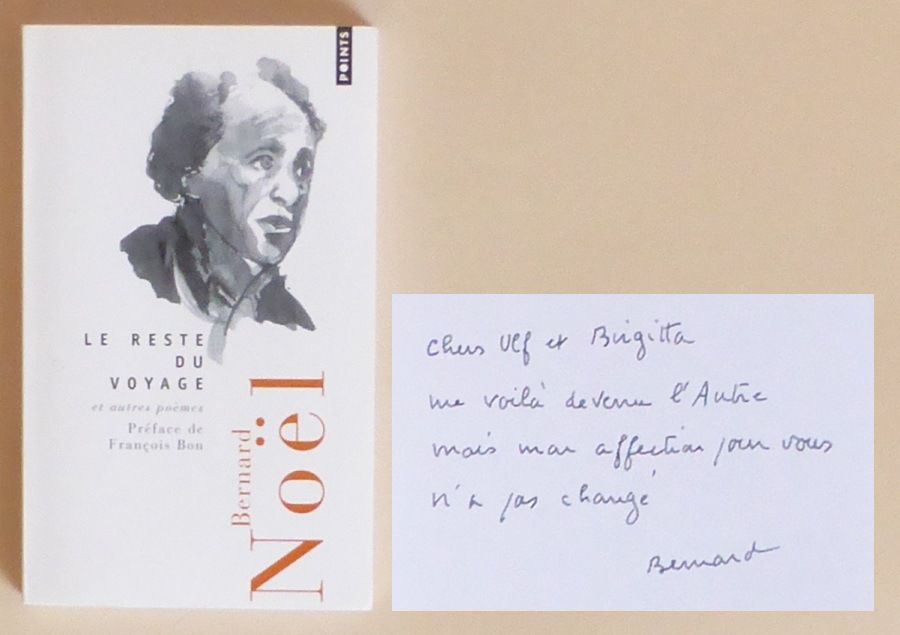 POINTS
LE RESTE
DU
VOYAGE
et autres poèmes
Préface de
François Bon
Bernard
Noël
chers Ulf et Birgitta
me voilà devenu l'Autre
mais mon affection pour vous
n'a pas changé
Bernard